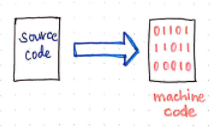 source
code
01101
11011
00010
machine
code